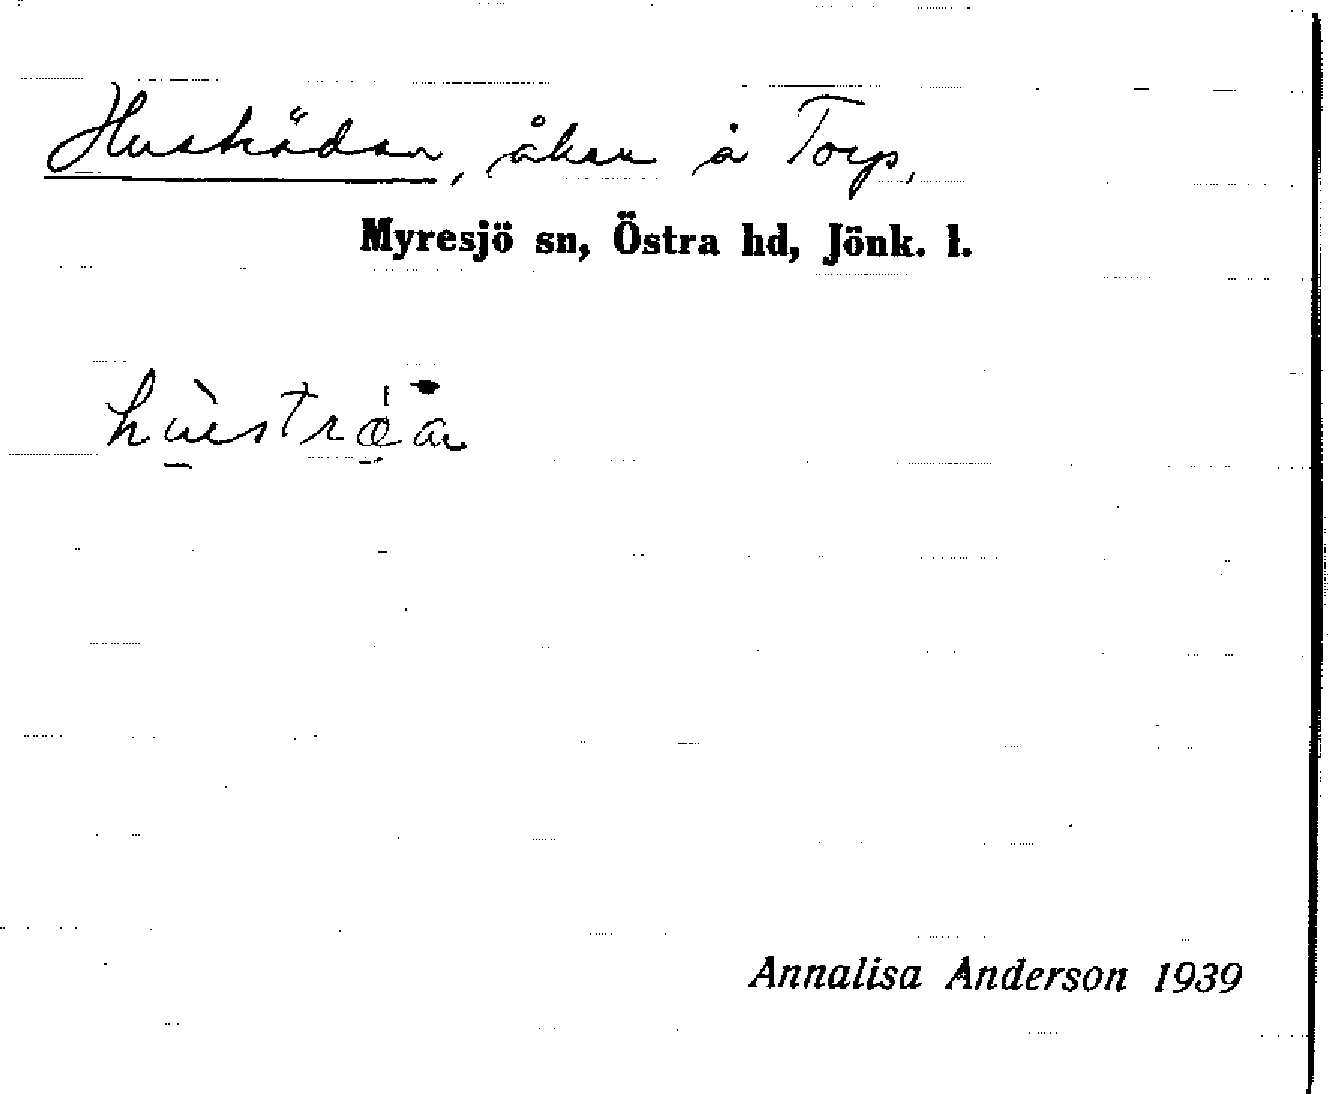 Husträdan, åker å Torp,
Myresjö sn, Östra hd, Jönk. l.
Annalisa Anderson 1939